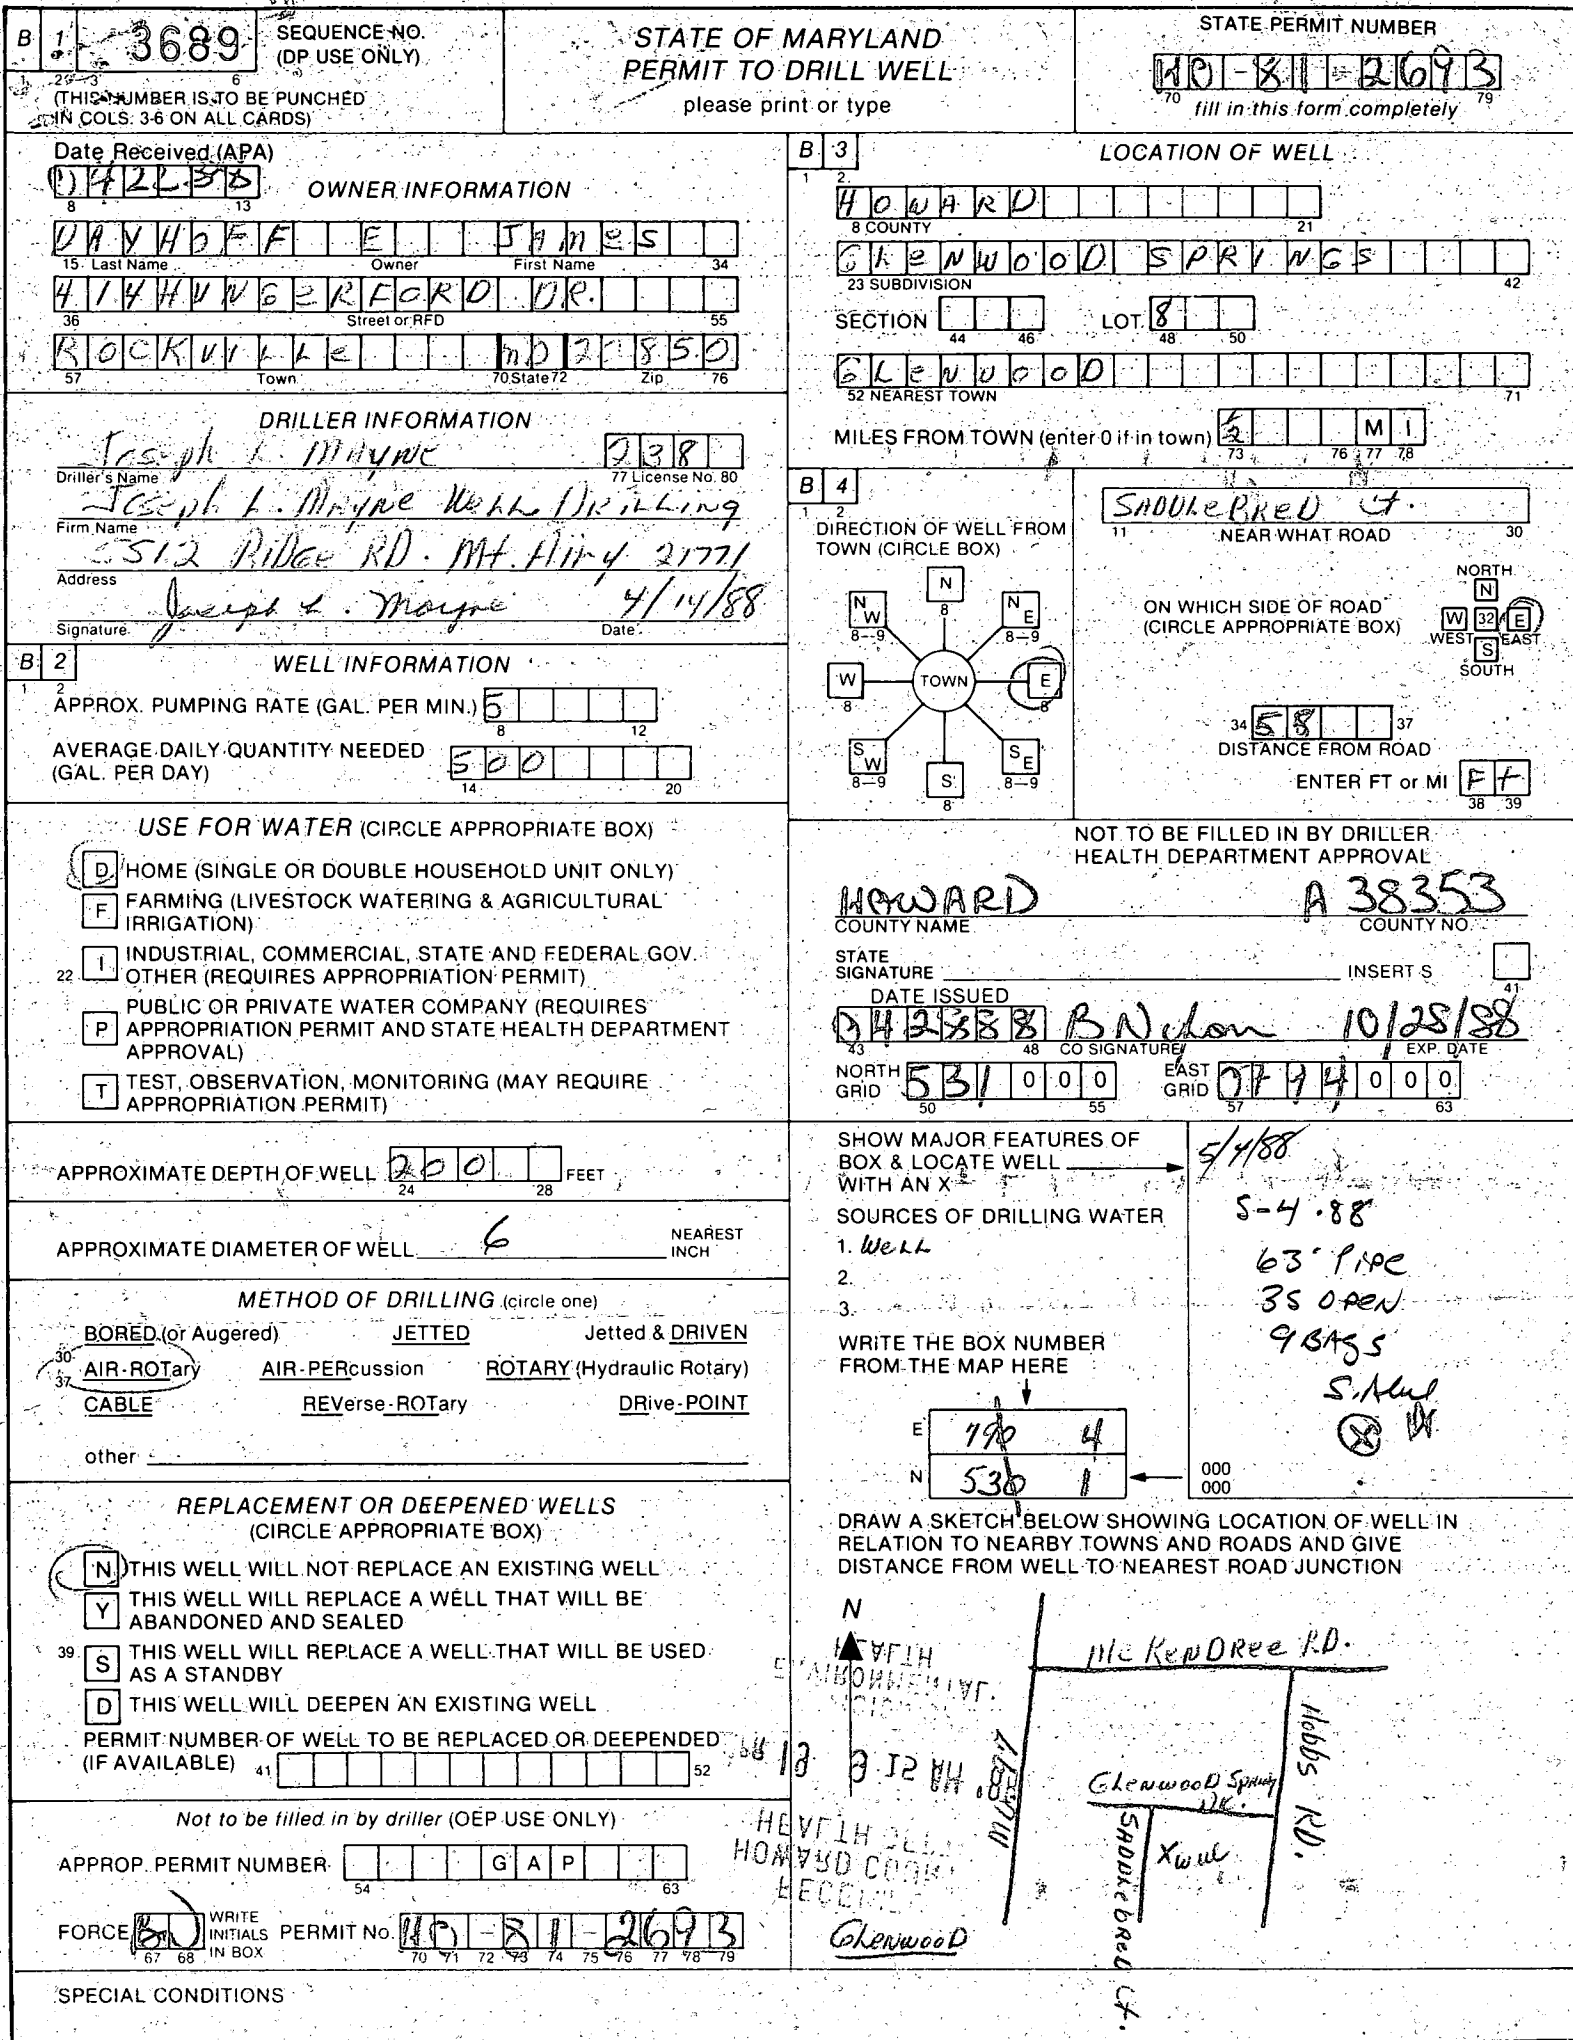 B 1 3689 SEQUENCE NO. (DP USE ONLY)
1 2 3 6
(THIS NUMBER IS TO BE PUNCHED
IN COLS. 3-6 ON ALL CARDS)
STATE OF MARYLAND
PERMIT TO DRILL WELL
please print or type
STATE PERMIT NUMBER
HO-81-2693
70 79
fill in this form completely
Date Received (APA)
8 13
OWNER INFORMATION
DAYHOFF E James
15 Last Name Owner First Name 34
414 HUNGERFORD DR.
36 Street or RFD 55
ROCKVILLE MD 20850
57 Town 70 State 72 Zip 76
DRILLER INFORMATION
Joseph L. Mayne 238
Driller's Name 77 License No. 80
Joseph L. Mayne Well Drilling
Firm Name
5512 Ridge RD. Mt. Airy 21771
Address
Joseph L. Mayne 4/14/88
Signature Date
B 2 WELL INFORMATION
1 2
APPROX. PUMPING RATE (GAL. PER MIN.) 5
8 12
AVERAGE DAILY QUANTITY NEEDED
(GAL. PER DAY) 500
14 20
USE FOR WATER (CIRCLE APPROPRIATE BOX)
D HOME (SINGLE OR DOUBLE HOUSEHOLD UNIT ONLY)
F FARMING (LIVESTOCK WATERING & AGRICULTURAL
IRRIGATION)
22 I INDUSTRIAL, COMMERCIAL, STATE AND FEDERAL GOV.
OTHER (REQUIRES APPROPRIATION PERMIT)
P PUBLIC OR PRIVATE WATER COMPANY (REQUIRES
APPROPRIATION PERMIT AND STATE HEALTH DEPARTMENT
APPROVAL)
T TEST, OBSERVATION, MONITORING (MAY REQUIRE
APPROPRIATION PERMIT)
APPROXIMATE DEPTH OF WELL 200 FEET
24 28
APPROXIMATE DIAMETER OF WELL 6 NEAREST
INCH
METHOD OF DRILLING (circle one)
BORED (or Augered) JETTED Jetted & DRIVEN
30 37 AIR-ROTary AIR-PERcussion ROTARY (Hydraulic Rotary)
CABLE REVerse-ROTary DRive-POINT
other
REPLACEMENT OR DEEPENED WELLS
(CIRCLE APPROPRIATE BOX)
N THIS WELL WILL NOT REPLACE AN EXISTING WELL
Y THIS WELL WILL REPLACE A WELL THAT WILL BE
ABANDONED AND SEALED
39 S THIS WELL WILL REPLACE A WELL THAT WILL BE USED
AS A STANDBY
D THIS WELL WILL DEEPEN AN EXISTING WELL
PERMIT NUMBER OF WELL TO BE REPLACED OR DEEPENED
(IF AVAILABLE) 41 52
Not to be filled in by driller (OEP USE ONLY)
APPROP. PERMIT NUMBER GAP
54 63
FORCE WRITE INITIALS IN BOX PERMIT No. HO-81-2693
67 68 70 71 72 73 74 75 76 77 78 79
SPECIAL CONDITIONS
B 3 LOCATION OF WELL
1 2
HOWARD
8 COUNTY 21
GLENWOOD SPRINGS
23 SUBDIVISION 42
SECTION LOT 8
44 46 48 50
GLENWOOD
52 NEAREST TOWN 71
MILES FROM TOWN (enter 0 if in town) ½ M I
73 76 77 78
B 4
1 2
DIRECTION OF WELL FROM
TOWN (CIRCLE BOX)
N 8
NW 8-9
NE 8-9
W 8
TOWN
E 8
SW 8-9
SE 8-9
S 8
SADDLEBRED CT.
11 NEAR WHAT ROAD 30
ON WHICH SIDE OF ROAD
(CIRCLE APPROPRIATE BOX)
NORTH
N
W 32 E
WEST EAST
S
SOUTH
34 58 37
DISTANCE FROM ROAD
ENTER FT or MI Ft
38 39
NOT TO BE FILLED IN BY DRILLER
HEALTH DEPARTMENT APPROVAL
HOWARD A 38353
COUNTY NAME COUNTY NO.
STATE
SIGNATURE INSERT S
41
DATE ISSUED
042888 B Nixon 10/28/88
43 48 CO SIGNATURE EXP. DATE
NORTH GRID 531 000 EAST GRID 0794 000
50 55 57 63
SHOW MAJOR FEATURES OF
BOX & LOCATE WELL
WITH AN X
SOURCES OF DRILLING WATER
1. Well
2.
3.
WRITE THE BOX NUMBER
FROM THE MAP HERE
E 790 4
N 530 1
000
000
5/4/88
5-4-88
63' Pipe
35 open
9 BAGS
DRAW A SKETCH BELOW SHOWING LOCATION OF WELL IN
RELATION TO NEARBY TOWNS AND ROADS AND GIVE
DISTANCE FROM WELL TO NEAREST ROAD JUNCTION
N
McKENDREE RD.
Hobbs RD.
Glenwood Springs
DR.
SADDLEBRED Ct.
X well
Glenwood
HEALTH
ENVIRONMENTAL
HEALTH DEPT.
HOWARD COUNTY
RECEIVED